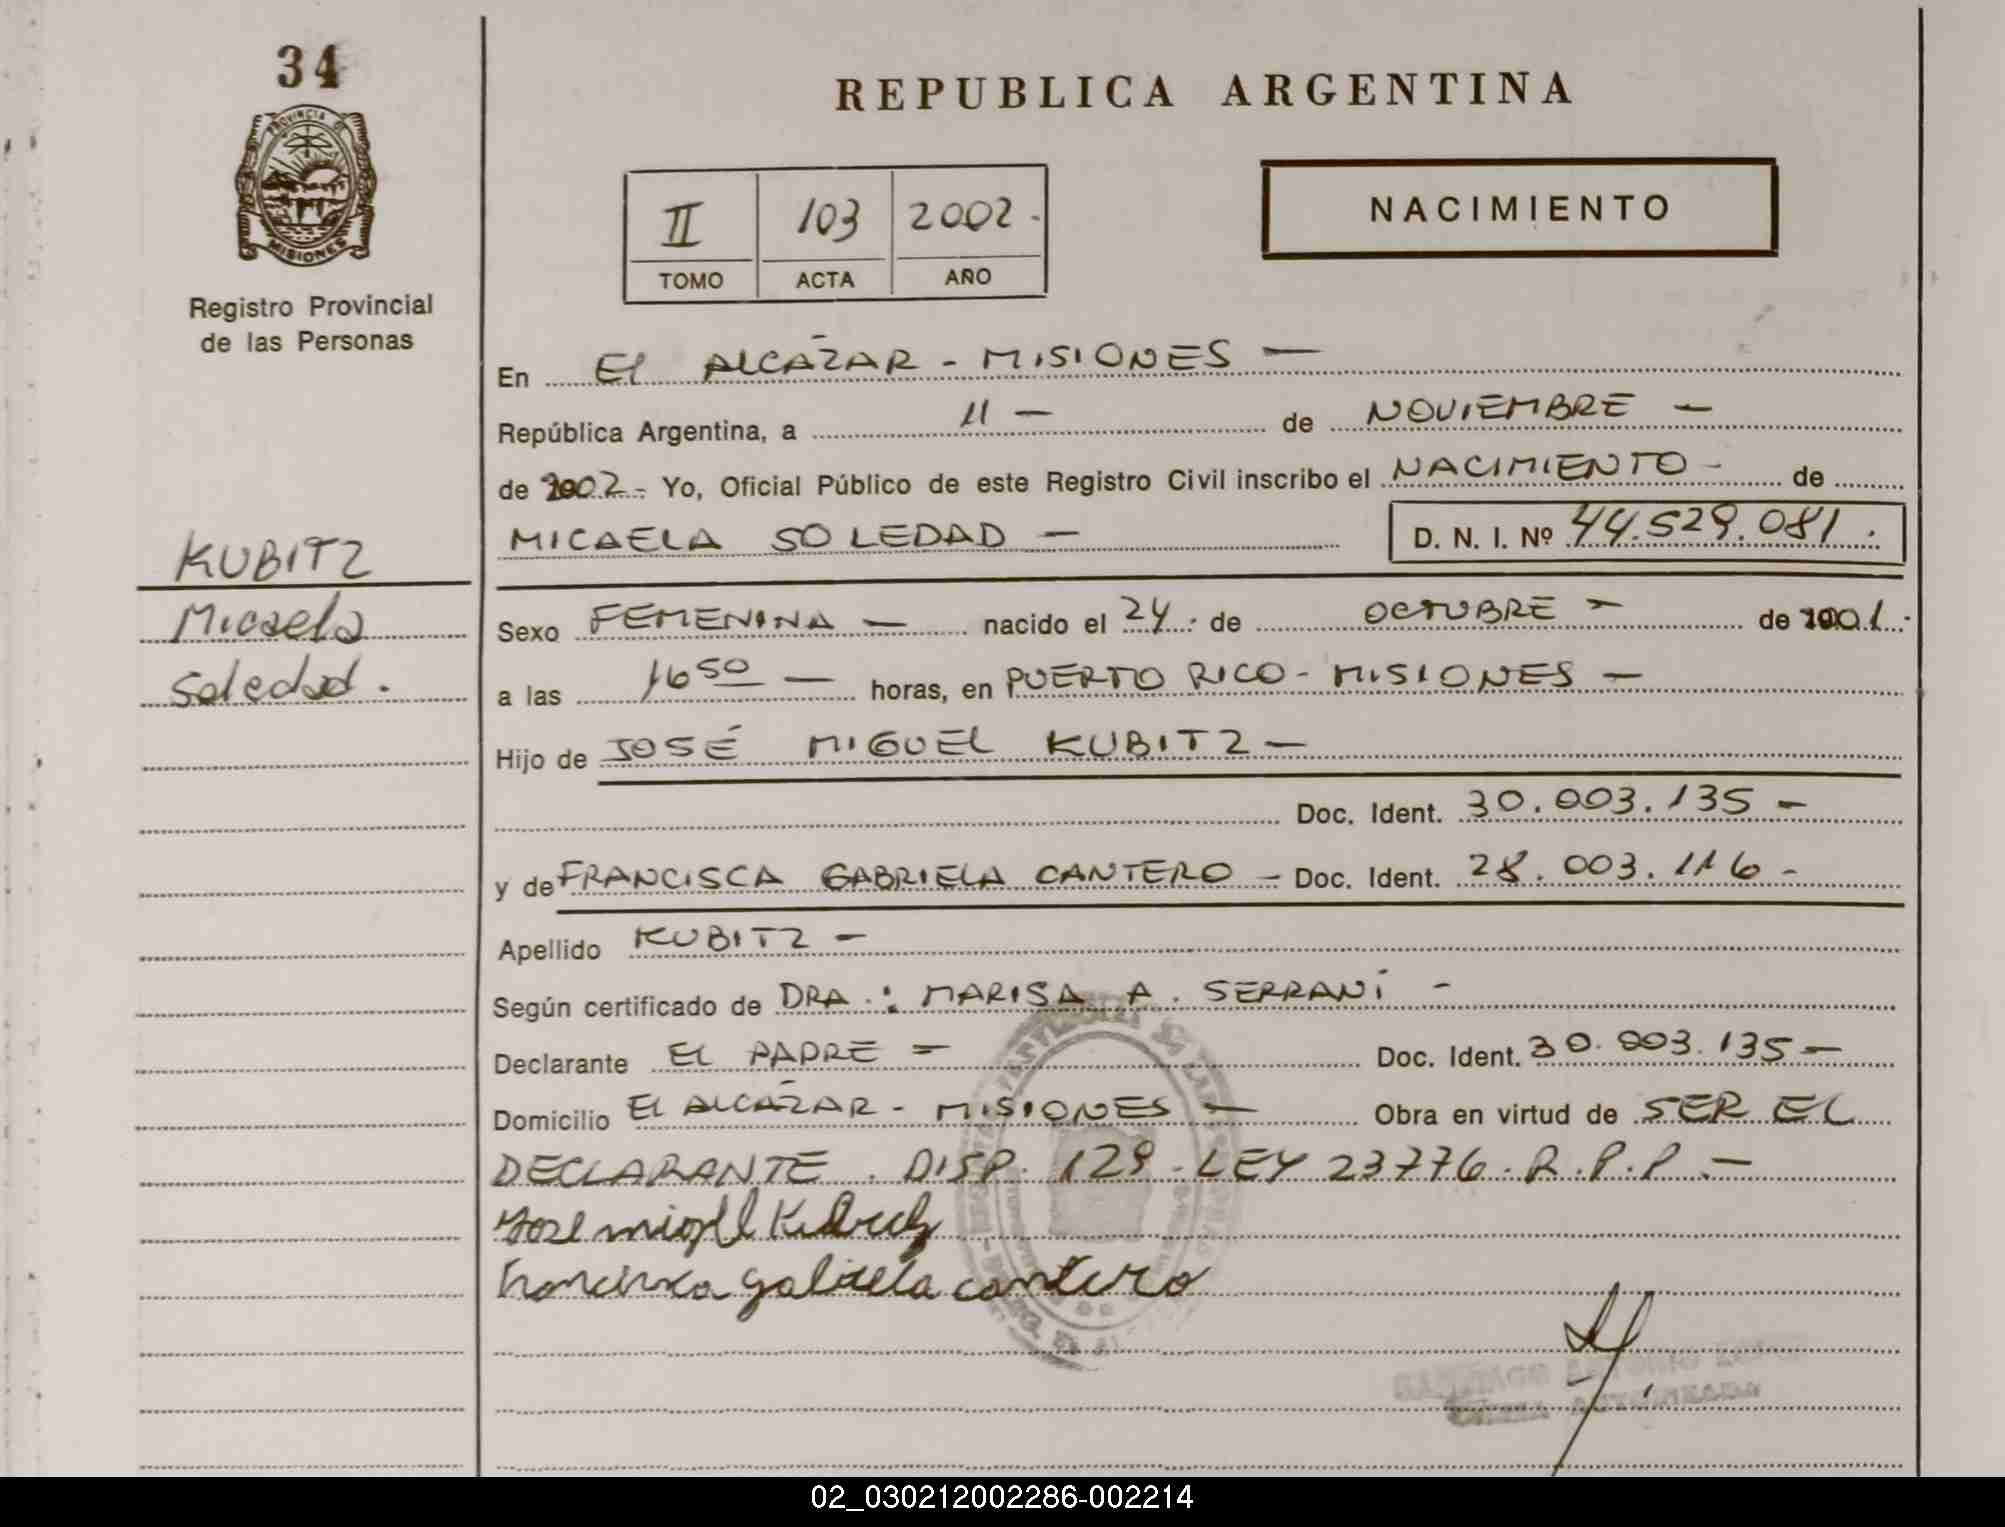 34
PROVINCIA DE
MISIONES
Registro Provincial
de las Personas
KUBITZ
Micaela
Soledad.
REPUBLICA ARGENTINA
II 103 2002.
TOMO ACTA AÑO
NACIMIENTO
En El ALCÁZAR - MISIONES —
República Argentina, a 11 — de NOVIEMBRE —
de 2002.- Yo, Oficial Público de este Registro Civil inscribo el NACIMIENTO - de
MICAELA SOLEDAD — D. N. I. Nº 44.529.081.
Sexo FEMENINA — nacido el 24. de OCTUBRE — de 2001.
a las 16 50 — horas, en PUERTO RICO - MISIONES —
Hijo de JOSÉ MIGUEL KUBITZ —
Doc. Ident. 30.003.135 —
y de FRANCISCA GABRIELA CANTERO — Doc. Ident. 28.003.116 -
Apellido KUBITZ —
Según certificado de DRA.: MARISA A. SERRANI -
Declarante EL PADRE = Doc. Ident. 30.003.135 —
Domicilio El ALCÁZAR - MISIONES — Obra en virtud de SER EL
DECLARANTE. DISP. 129 - LEY 23776. R.P.P. —
Jose miguel Kubitz
Francisca gabriela cantero
02_030212002286-002214